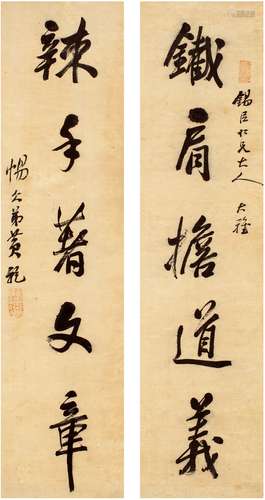 鐵肩擔道義
錫臣仁兄大人 大雅
辣手著文章
弟黃